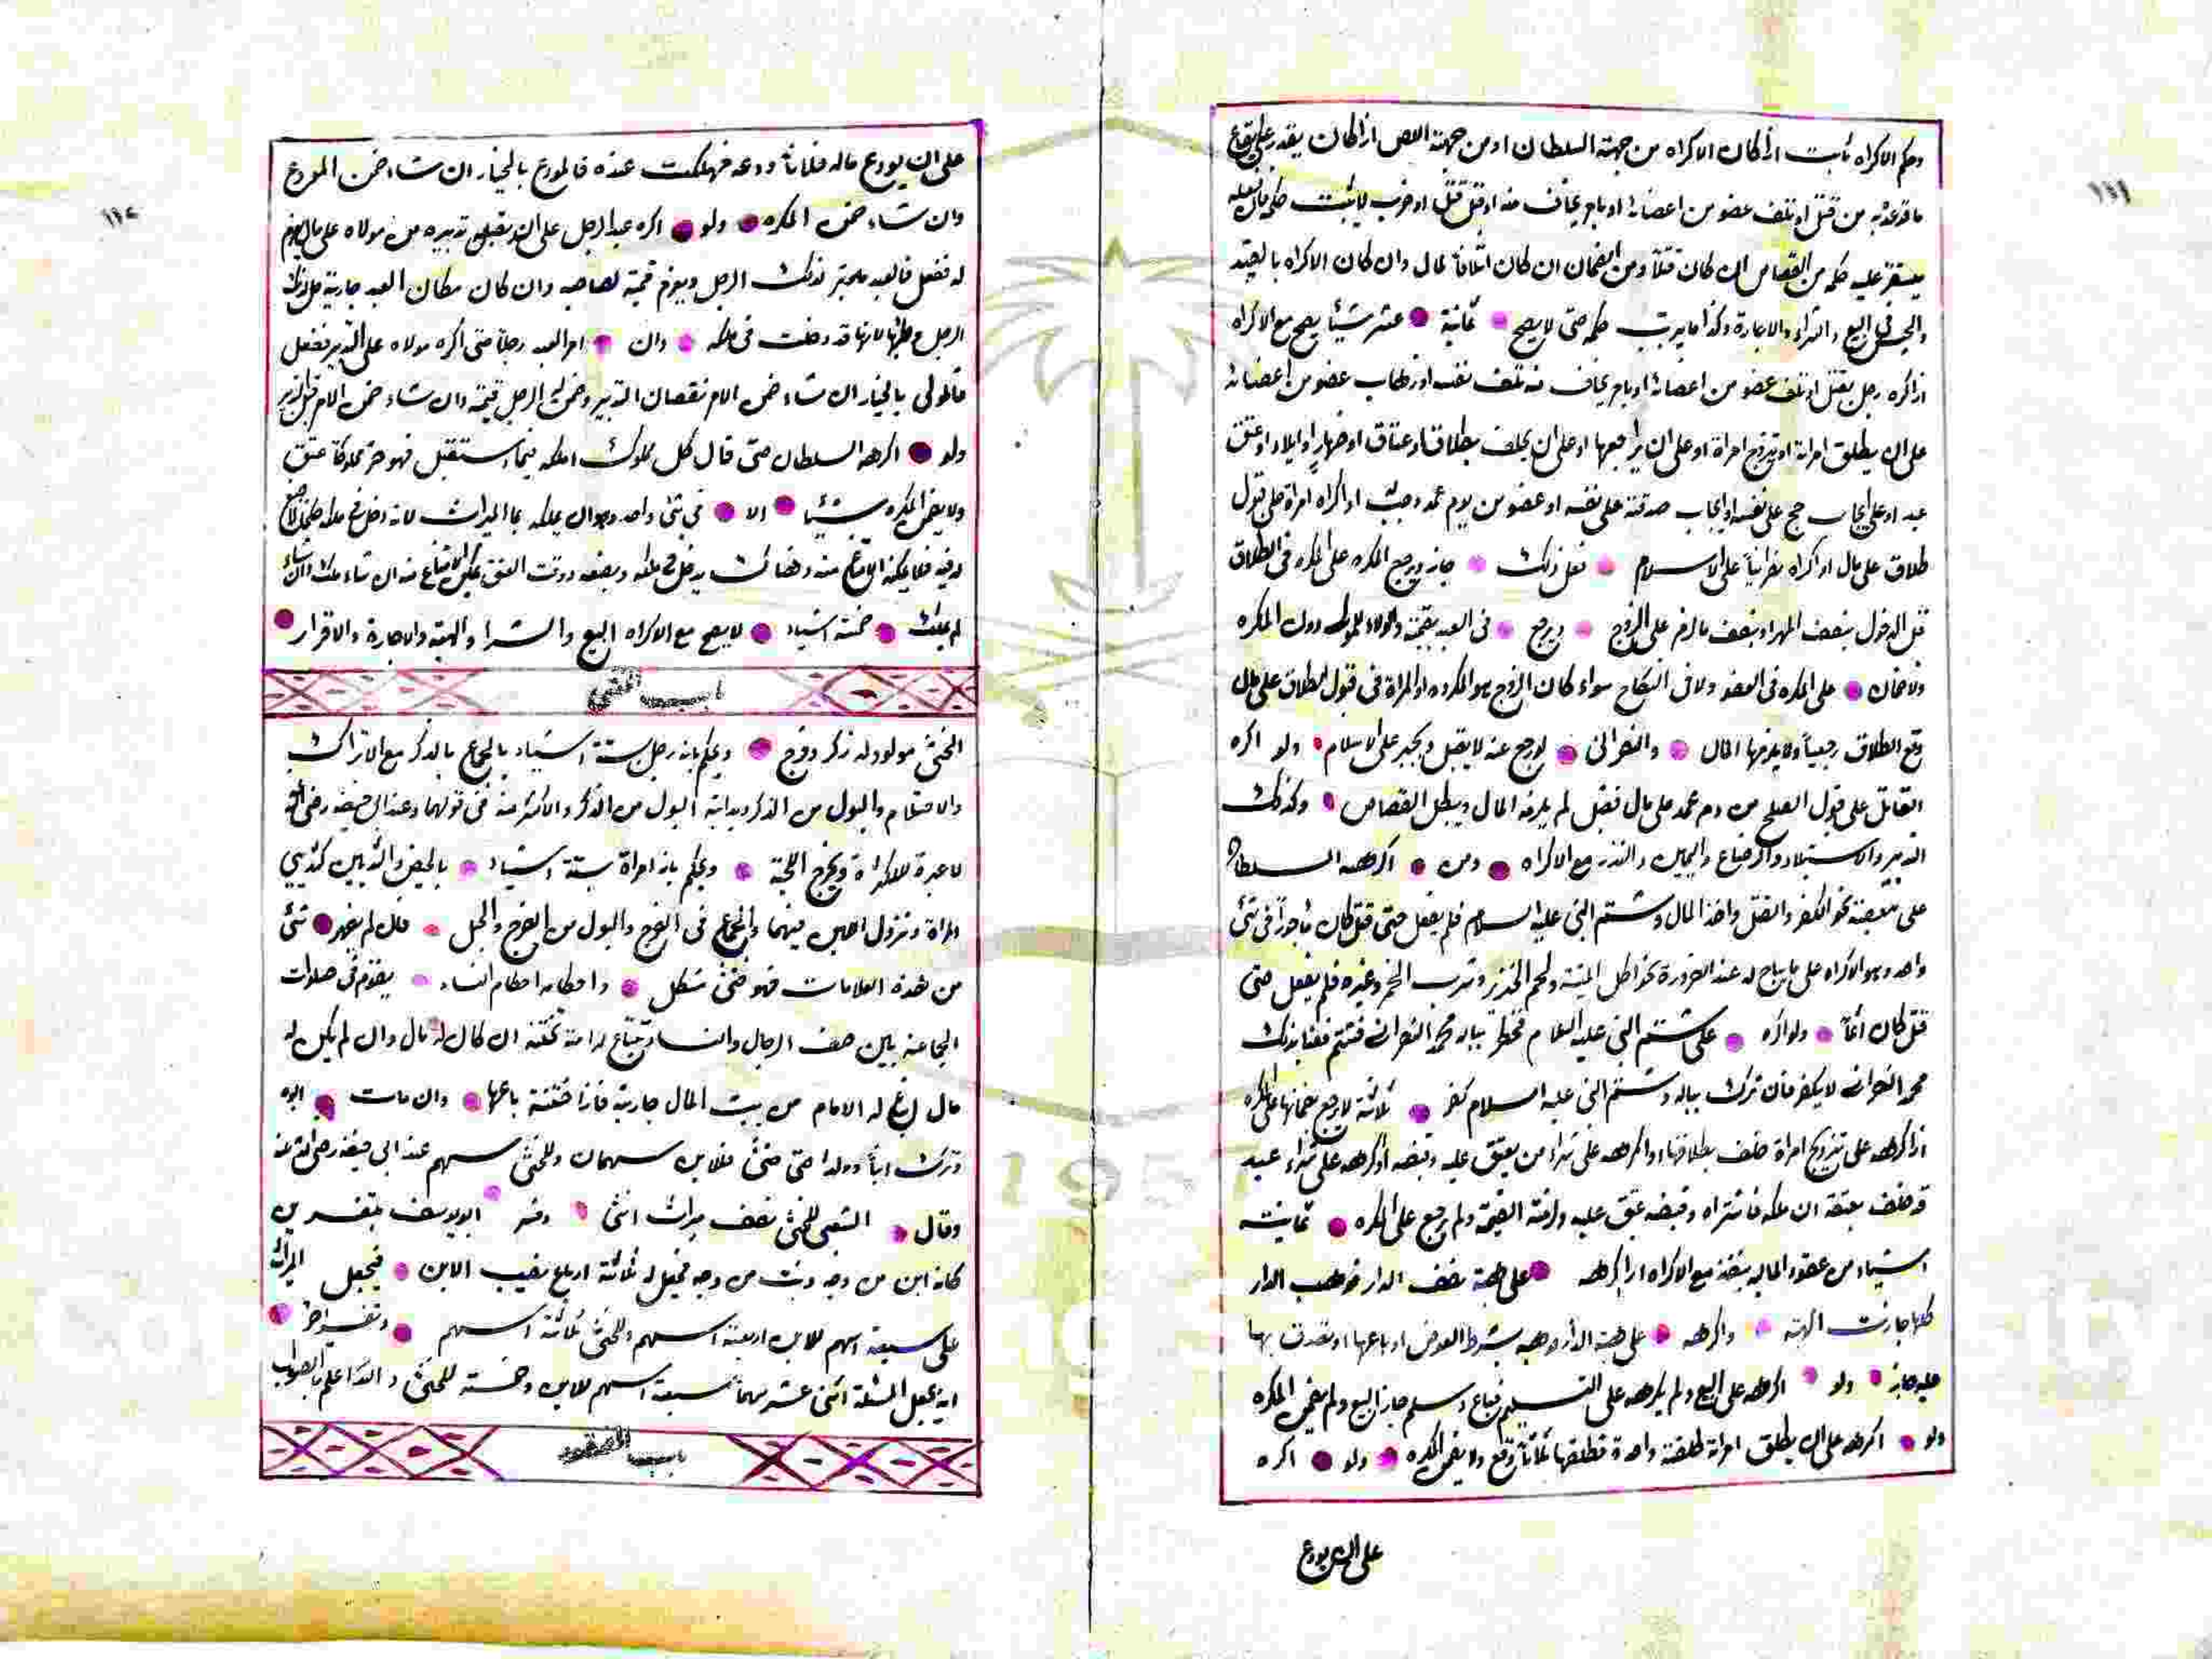 ١١١
وحكم الاكراه ثابت اذا كان الاكراه من جهة السلطان او من جهة اللص اذا كان يقدر على ايقاع
ما توعد به من قتل او تلف عضو من اعضائه او بامر يخاف منه او قيل قتل او ضرب لا يثبت حكم ما فعله
فيستقر عليه حكمه من القصاص ان كان قتلاً ومن الضمان ان كان اتلافاً لمال وان كان الاكراه بالقيد
والحبس في البيع والشراء والاجارة وكذا ما يرتب حكمه حتى لا يصح ثمانية عشر شيئا يصح مع الاكراه
اذا كره رجل بقتل او تلف عضو من اعضائه او بامر يخاف منه تلف نفسه او ذهاب عضو من اعضائه
على ان يطلق امراته او تزوج امراة او على ان يراجعها او على ان يحلف بطلاق او عتاق او ظهار او ايلاء او عتق
عبد او على ايجاب حج على نفسه او ايجاب صدقة على نفسه او عفو من دم عمد وجب له او اكراه امراة على قبول
طلاق على مال او اكراه نصرانياً على الاسلام ففعل ذلك جاز ويرجع المكره على المكره في الطلاق
قبل الدخول بنصف المهر او بنصف ما لزم على الزوج ويرجع في العبد بقيمته والولاء للمولى دون المكره
ولا ضمان على المكره في العفو ولا في النكاح سواء كان الزوج هو المكروه او المراة في قبول الطلاق على مال
وقع الطلاق رجعياً ولا يلزمها المال والنصراني لو رجع عنه لا يقبل ويجبر على الاسلام ولو اكره
القاتل على قبول الصلح من دم عمد على مال فقبل لم يلزمه المال ويبطل القصاص وكذلك
التدبير والاستيلاد والرضاع واليمين والنذر مع الاكراه ومن اكرهه السلطان
على معصية نحو الكفر والقتل واخذ المال وشتم النبي عليه السلام فلم يفعل حتى قتل كان ماجوراً في شئ
واحد وهو الاكراه على ما يباح له عند الضرورة نحو اكل الميتة ولحم الخنزير وشرب الخمر وغيره فلم يفعل حتى
قتل كان اثماً ولو اكره على شتم النبي عليه السلام فخطر بباله محمد النصراني فشتم فعنا بذلك
محمد النصراني لا يكفر فان ترك بباله وشتم النبي عليه السلام كفر ثلاثة لا يرجع بضمانها على المكره
اذا اكرهه على تزويج امراة حلف بطلاقها او اكرهه على شراء من يعتق عليه وقبضه او اكرهه على شراء عبد
قد حلف بعتقه ان ملكه فاشتراه وقبضه عتق عليه ولزمته القيمة ولم يرجع على المكره ثمانية
اشياء من عقود المالية ينفذ مع الاكراه اذا اكرهه على هبة نصف الدار فوهب الدار
كلها جازت الهبة واكرهه على هبة الدار فوهبه بشرط العوض او باعها او تصدق بها
عليه جاز ولو اكرهه على البيع ولم يكرهه على التسليم فباع وسلم جاز البيع ولم يضمن المكره
ولو اكرهه على ان يطلق امراته طلقة واحدة فطلقها ثلاثاً وقع ولا يضمن المكره ولو اكره
على ان يودع
١١٢
على ان يودع ماله فلاناً ودعه فهلكت عنده فالمودع بالخيار ان شاء ضمن المودع
وان شاء ضمن المكره ولو اكره عبد الرجل على ان يقبل تدبيره من مولاه على مال
له ففعل فالعبد مدبر لذلك الرجل ويغرم قيمة لصاحبه وان كان مكان العبد جارية حل لذلك
الرجل وطيها لانها قد دخلت في ملكه وان امر العبد رجلاً حتى اكره مولاه على التدبير ففعل
فالمولى بالخيار ان شاء ضمن الامر نقصان التدبير وضمن الرجل قيمته وان شاء ضمن الامر
ولو اكرهه السلطان حتى قال كل مملوك املكه فيما استقبل فهو حر فملوكا عتق
ولا يضمن المكره شيئا الا في شئ واحد وهو ان يملكه بالميراث لانه دخل في ملكه
له فيه فلا يمكنه الامتناع منه وهناك يدخل في ملكه وبصنعه ووقت العتق يمكن الامتناع منه ان شاء ملك وان شاء
لم يملك خمسة اشياء لا يصح مع الاكراه البيع والشرا والهبة والاجارة والاقرار
باب الخنثى
الخنثى مولود له ذكر وفرج ويحكم بانه رجل بستة اشياء بالجماع بالذكر مع الانزال
والاحتلام والبول من الذكر وبداية البول من الذكر والاكثر منه في قولهما وعند ابي حنيفة رضي الله
لا عبرة للاكثرة وبخروج اللحية ويحكم بانه امراة بستة اشياء بالحيض والثديين كثديي
المراة ونزول اللبن فيهما والجماع في الفرج والبول من الفرج والحبل فان لم يظهر شئ
من هذه العلامات فهو خنثى مشكل واحكامه احكام النساء يقوم في صلوات
الجماعة بين صف الرجال والنساء وتبتاع له امة تختنه ان كان له مال وان لم يكن له
مال ابتاع له الامام من بيت المال جارية فاذا ختنته باعها وان مات ابوه
وترك ابناً وولدا خنثى فللابن سهمان وللخنثى سهم عند ابي حنيفة رضي الله عنه
وقال الشعبي للخنثى نصف ميراث انثى وفسر ابو يوسف بتفسيرين
كانه ابن من وجه وبنت من وجه فجعل له ثلاثة ارباع نصيب الابن فيجعل الميراث
على سبعة اسهم للابن اربعة اسهم وللخنثى ثلاثة اسهم وتفسير اخر
انه يجعل المسئلة اثنى عشر سهماً سبعة اسهم للابن وخمسة للخنثى والله اعلم بالصواب
باب المفقود